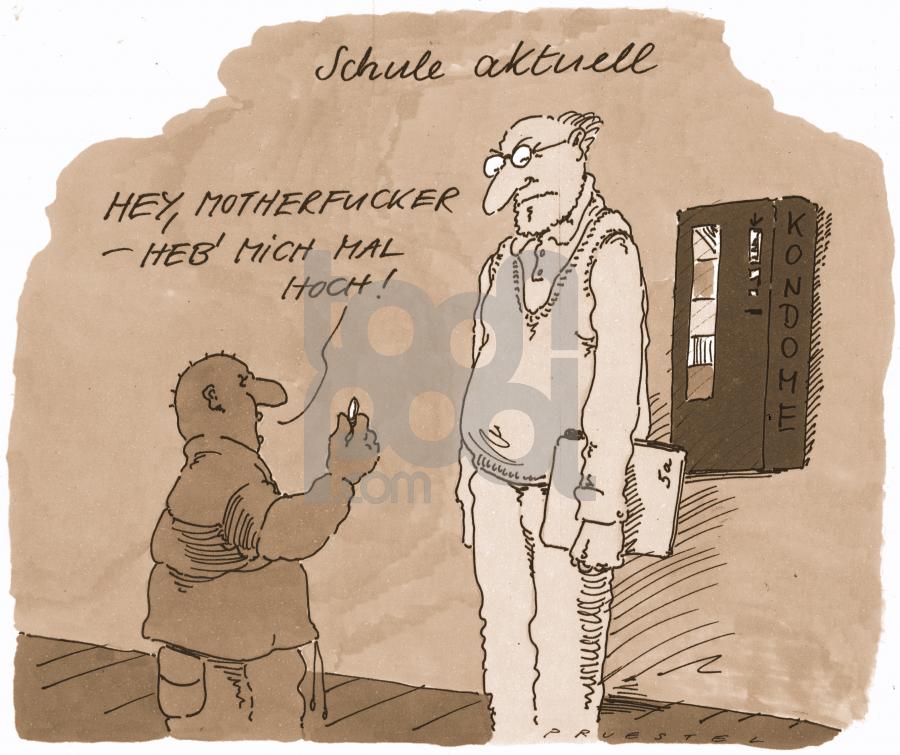 Schule aktuell
HEY, MOTHERFUCKER
– HEB' MICH MAL
HOCH!
KONDOME
5a
toonpool
.com
PRUESTEL